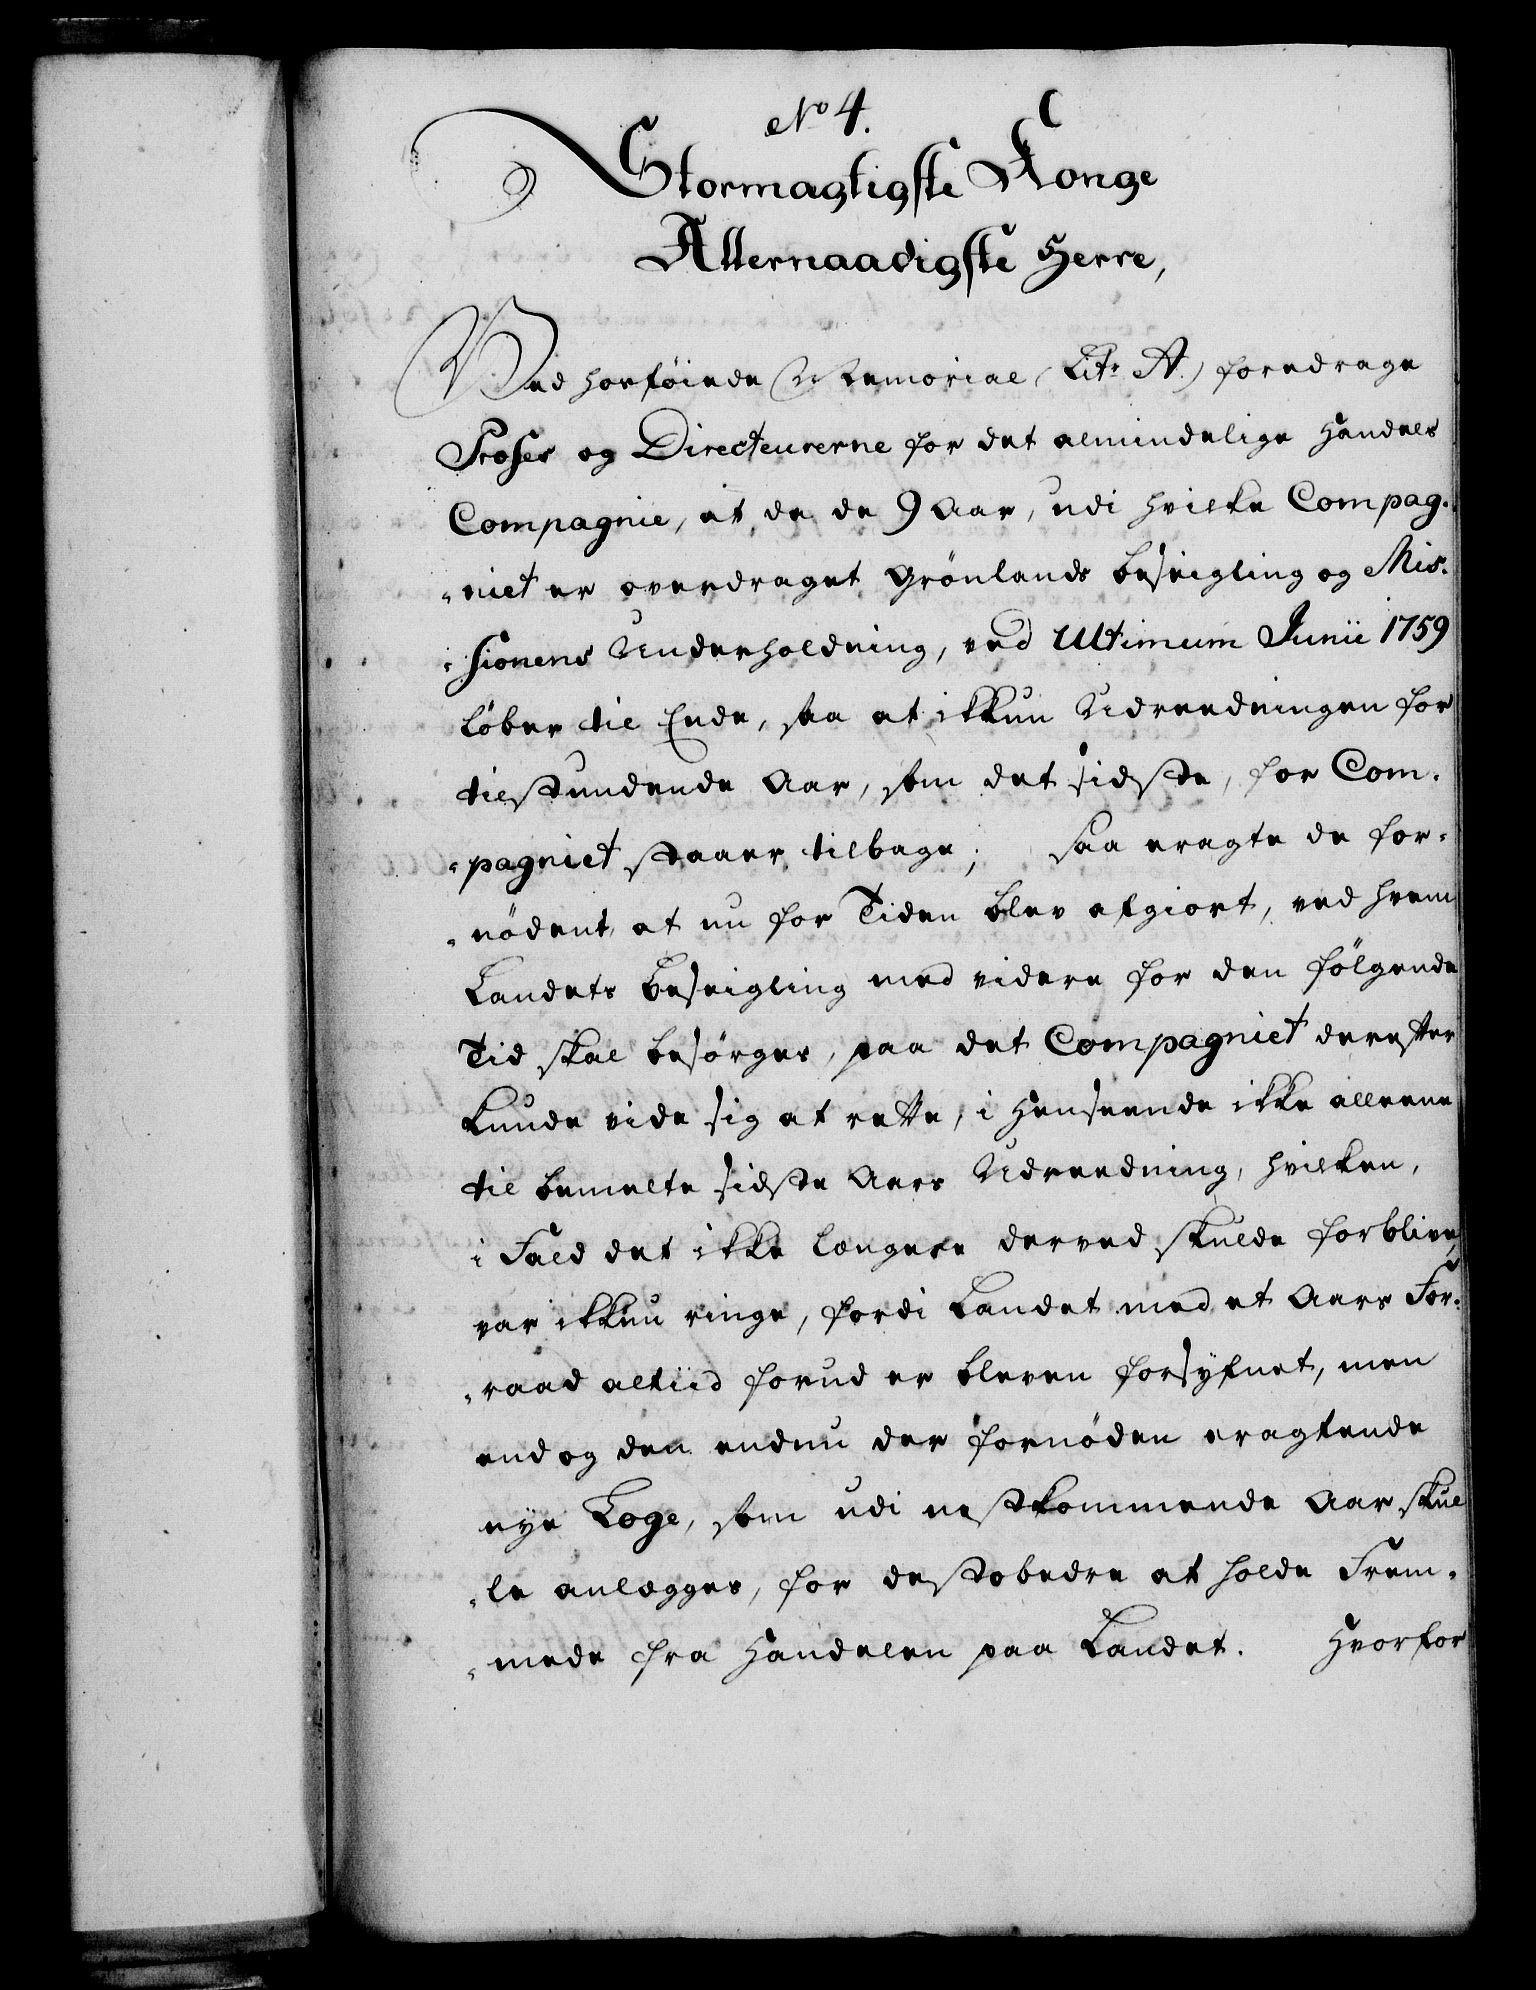 No 4.
Stormagtigste Konge
Allernaadigste Herre,
Ved hosföiede Memorial (Litr A.) foredrage
Præses og Directeurerne for det almindelige Handels
Compagnie, at da de 9 Aar, udi hvilke Compag-
-niet er overdraget Grönlands Beseigling og Mis-
-sionens Underholdning, ved Ultimum Junii 1759
löber til Ende, saa at ikkun Udreedningen for
tilstundende Aar, som det sidste, for Com-
-pagniet staaer tilbage; saa eragte de for-
-nödent, at nu for Tiden blev afgiort, ved hvem
Landets Beseigling med videre for den fölgende
Tid skal besörges, paa det Compagniet derefter
kunde vide sig at rette, i Henseende ikke alleene
til bemelte sidste Aars Udreedning, hvilken,
i Fald det ikke længere derved skulde forblive,
var ikkun ringe, fordi Landet med et Aars For-
-raad altiid forud er bleven forsyfnet, men
end og den endnu der fornöden eragtende
nye Loge, som udi nestkommende Aar skul
-le anlægges, for destobedre at holde Frem-
-mede fra Handelen paa Landet. Hvorfor